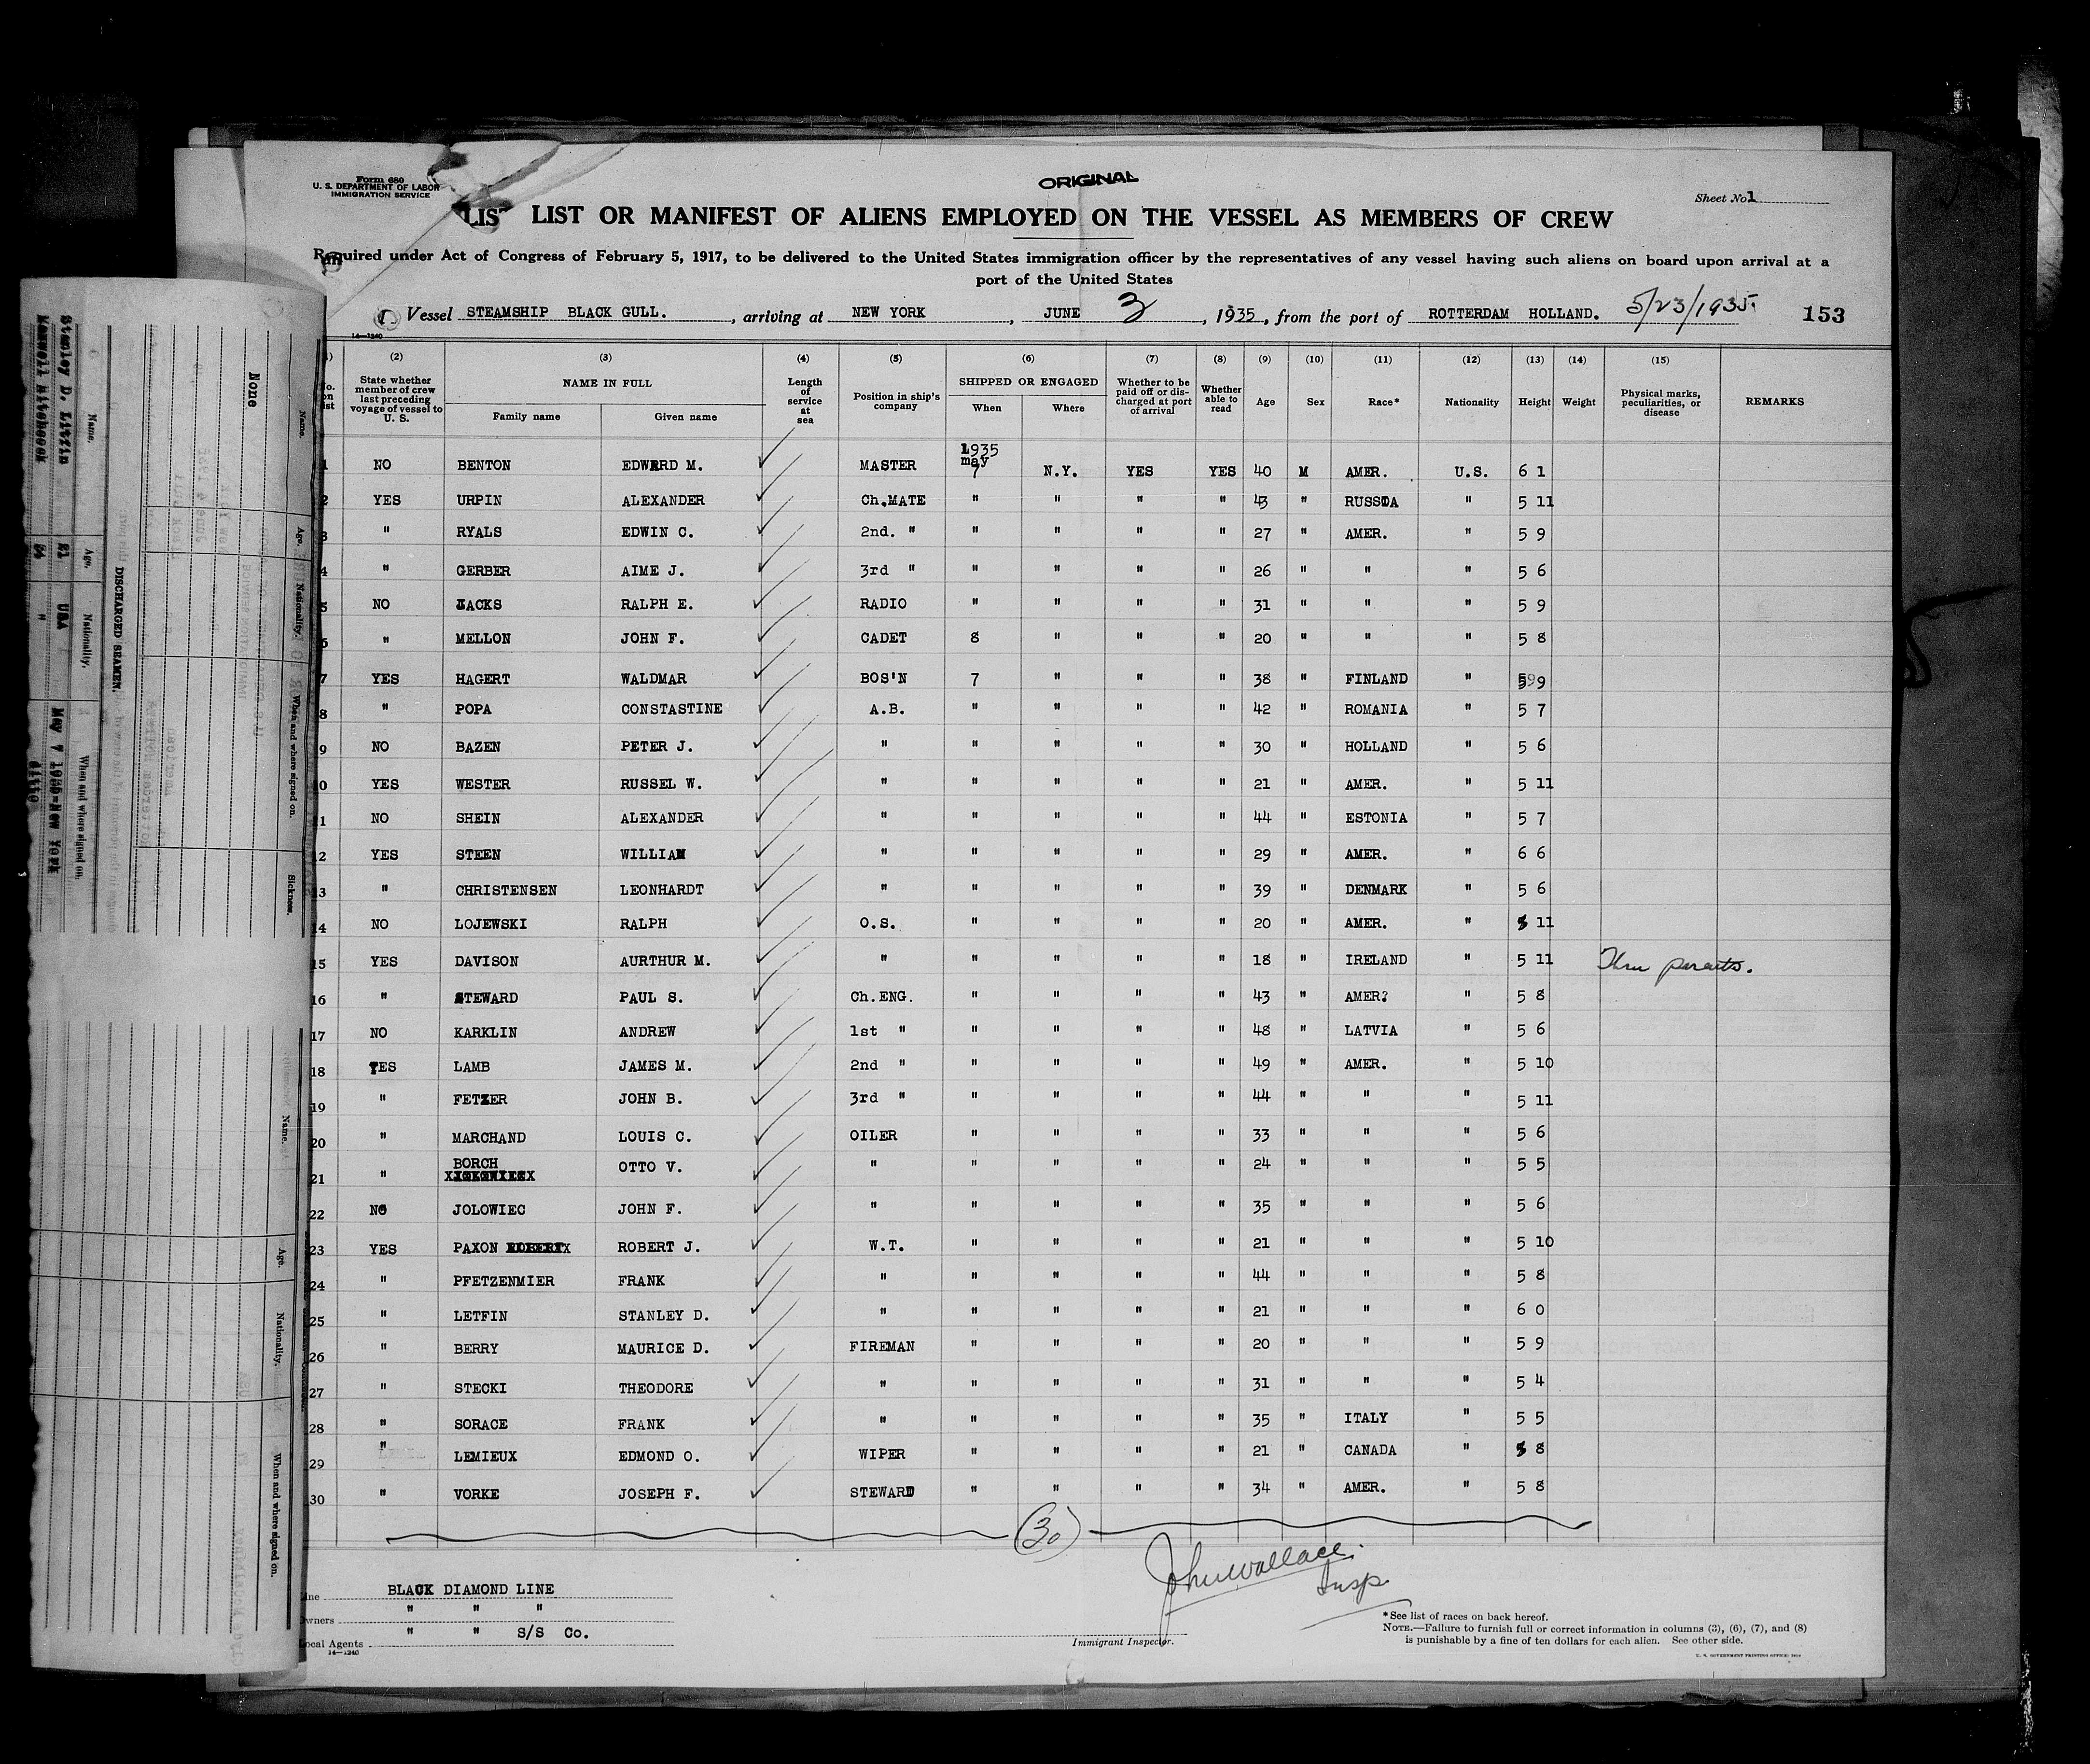 Form 680
U. S. DEPARTMENT OF LABOR
IMMIGRATION SERVICE
ORIGINAL
Sheet No. 1
LIST LIST OR MANIFEST OF ALIENS EMPLOYED ON THE VESSEL AS MEMBERS OF CREW
Required under Act of Congress of February 5, 1917, to be delivered to the United States immigration officer by the representatives of any vessel having such aliens on board upon arrival at a
port of the United States
Vessel STEAMSHIP BLACK GULL. , arriving at NEW YORK , JUNE 3 , 1935 , from the port of ROTTERDAM HOLLAND. 5/23/1935. 153
14—1240
(2) (3) (4) (5) (6) (7) (8) (9) (10) (11) (12) (13) (14) (15)
No. on list State whether member of crew last preceding voyage of vessel to U. S. NAME IN FULL Family name Given name Length of service at sea Position in ship's company SHIPPED OR ENGAGED When Where Whether to be paid off or discharged at port of arrival Whether able to read Age Sex Race* Nationality Height Weight Physical marks, peculiarities, or disease REMARKS
1935
may
1 NO BENTON EDWARD M. MASTER 7 N.Y. YES YES 40 M AMER. U.S. 6 1
2 YES URPIN ALEXANDER Ch.MATE " " " " 43 " RUSSIA " 5 11
3 " RYALS EDWIN C. 2nd. " " " " " 27 " AMER. " 5 9
4 " GERBER AIME J. 3rd " " " " " 26 " " " 5 6
5 NO JACKS RALPH E. RADIO " " " " 31 " " " 5 9
6 " MELLON JOHN F. CADET 8 " " " 20 " " " 5 8
7 YES HAGERT WALDMAR BOS'N 7 " " " 38 " FINLAND " 5 9
8 " POPA CONSTASTINE A.B. " " " " 42 " ROMANIA " 5 7
9 NO BAZEN PETER J. " " " " " 30 " HOLLAND " 5 6
10 YES WESTER RUSSEL W. " " " " " 21 " AMER. " 5 11
11 NO SHEIN ALEXANDER " " " " " 44 " ESTONIA " 5 7
12 YES STEEN WILLIAM " " " " " 29 " AMER. " 6 6
13 " CHRISTENSEN LEONHARDT " " " " " 39 " DENMARK " 5 6
14 NO LOJEWSKI RALPH O.S. " " " " 20 " AMER. " 5 11
15 YES DAVISON AURTHUR M. " " " " " 18 " IRELAND " 5 11 Thru parents.
16 " STEWARD PAUL S. Ch.ENG. " " " " 43 " AMER? " 5 8
17 NO KARKLIN ANDREW 1st " " " " " 48 " LATVIA " 5 6
18 YES LAMB JAMES M. 2nd " " " " " 49 " AMER. " 5 10
19 " FETZER JOHN B. 3rd " " " " " 44 " " " 5 11
20 " MARCHAND LOUIS C. OILER " " " " 33 " " " 5 6
21 " BORCH OTTO V. " " " " " 24 " " " 5 5
22 NO JOLOWIEC JOHN F. " " " " " 35 " " " 5 6
23 YES PAXON ROBERT J. W.T. " " " " 21 " " " 5 10
24 " PFETZENMIER FRANK " " " " " 44 " " " 5 8
25 " LETFIN STANLEY D. " " " " " 21 " " " 6 0
26 " BERRY MAURICE D. FIREMAN " " " " 20 " " " 5 9
27 " STECKI THEODORE " " " " " 31 " " " 5 4
28 " SORACE FRANK " " " " " 35 " ITALY " 5 5
29 " LEMIEUX EDMOND O. WIPER " " " " 21 " CANADA " 5 8
30 " VORKE JOSEPH F. STEWARD " " " " 34 " AMER. " 5 8
(30)
John Wallace.
Insp
Line BLACK DIAMOND LINE
Owners " " "
Local Agents " " S/S Co.
14—1240
Immigrant Inspector.
*See list of races on back hereof.
NOTE.—Failure to furnish full or correct information in columns (3), (6), (7), and (8)
is punishable by a fine of ten dollars for each alien. See other side.
U. S. GOVERNMENT PRINTING OFFICE
Name. Age. Nationality. When and where signed on. Sickness.
None
DISCHARGED SEAMEN.
Name. Age. Nationality. When and where signed on.
Stanley D. Litfin 21 USA May 7 1935-New York
Maxwell Hitchcock 24 " ditto
Name. Age. Nationality. When and where signed on.